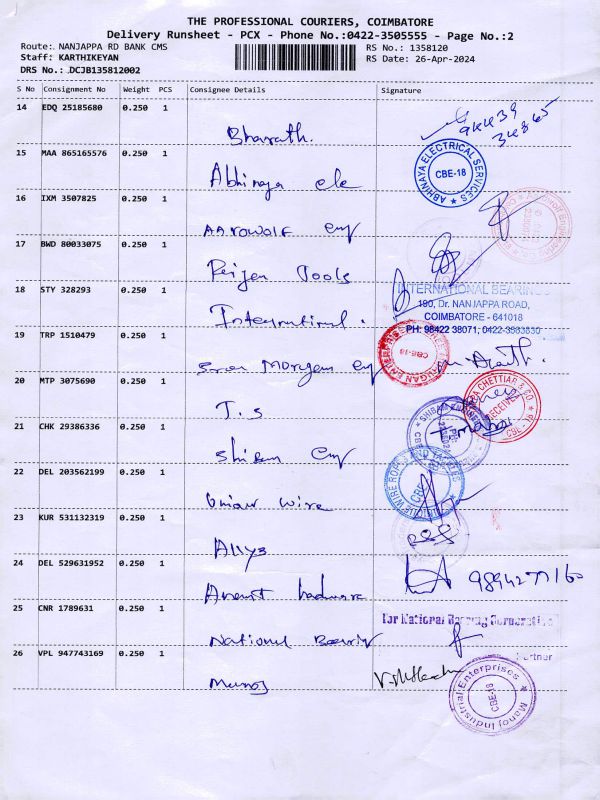 THE PROFESSIONAL COURIERS, COIMBATORE
Delivery Runsheet - PCX - Phone No.:0422-3505555 - Page No.:2
Route: NANJAPPA RD BANK CMS
RS No.: 1358120
Staff: KARTHIKEYAN
RS Date: 26-Apr-2024
DRS No.: DCJB135812002
S No Consignment No Weight PCS Consignee Details Signature
14 EDQ 25185680 0.250 1
Bharath.
15 MAA 865165576 0.250 1
Abhinaya ele
ABHINAYA ELECTRICAL SERVICES
CBE-18
16 IXM 3507825 0.250 1
AAROWOLF
17 BWD 80033075 0.250 1
Tools
18 STY 328293 0.250 1
International.
INTERNATIONAL BEARINGS
190, Dr. NANJAPPA ROAD,
COIMBATORE - 641018
PH: 98422 38071, 0422-3583830
19 TRP 1510479 0.250 1
CBE-18
20 MTP 3075690 0.250 1
T.S
CHETTIAR & CO.
RECEIVED
21 CHK 29386336 0.250 1
Shibam
SHIBAM
22 DEL 203562199 0.250 1
wire
WIRE ROPES AND
CBE
23 KUR 531132319 0.250 1
24 DEL 529631952 0.250 1
Anant hadware
9894277160
25 CNR 1789631 0.250 1
National Bearing
for National Bearing Corporation
Partner
26 VPL 947743169 0.250 1
Manoj
Manoj Industrial Enterprises
CBE-18